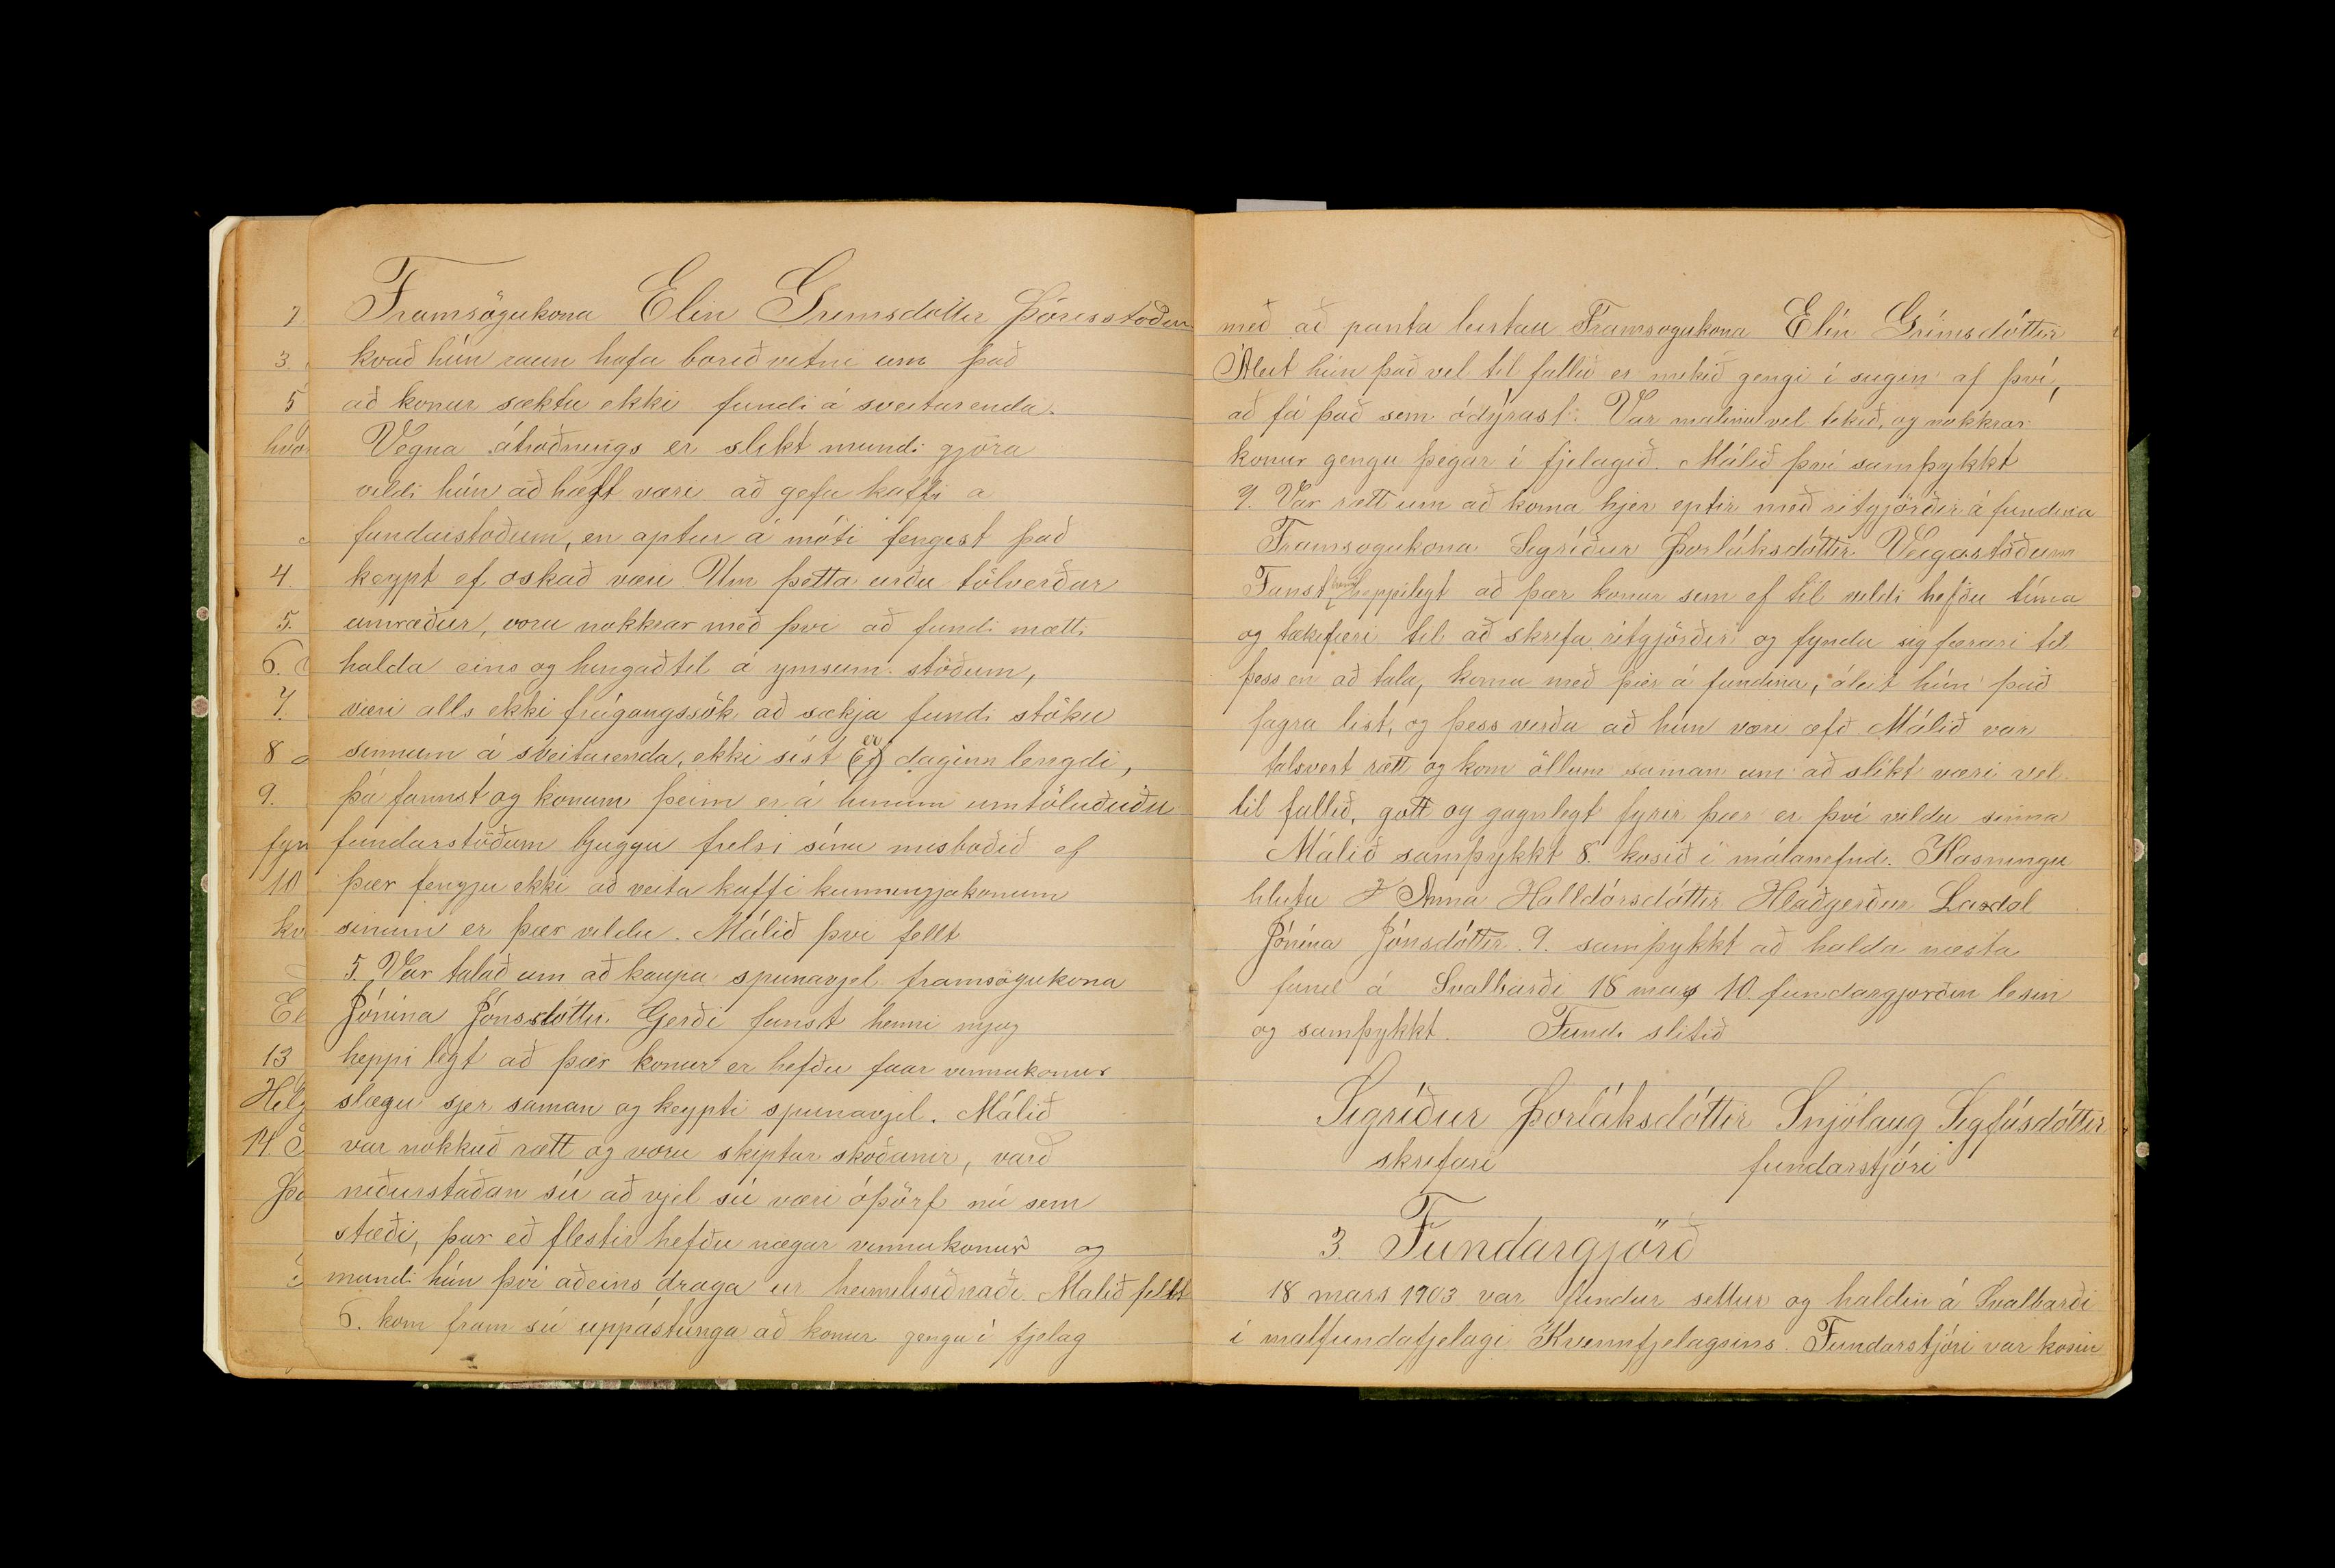 Framsögukona Elin Grimsdóttir Þórisstoðum
kvað hún raun hafa borið vitni um það
að konur sæktu ekki fundi á sveitarenda.
Vegna átroðnings er slikt mundi gjöra
vildi hún að hæft væri að gefa kaffi a
fundarstoðum, en aptur á móti fengist það
keypt ef oskað væri. Um þetta urðu tölverðar
umræður, voru nokkrar með þvi að fundi mætti
halda eins og hingaðtil á ymsum stöðum,
væri alls ekki frágangssök að sækja fundi stöku
sinnum á sveitarenda, ekki sist (ef) er daginn lengdi,
þá fannst og konum þeim er á hinum umtöluðuðu
fundarstöðum byggju frelsi sínu misboðið ef
þær fengju ekki að veita kaffi kunningjakonum
sinum er þær vildu. Málið þvi fellt
5. Var talað um að kaupa spunavjel framsögukona
Jónína Jónsdóttir Gerði fanst henni mjog
heppilegt að þær konur er hefðu faar vinnukonur
slægu sjer saman og keypti spunavjel. Málið
var nokkuð rætt og voru skiptar skoðanir, varð
niðurstaðan sú að vjel sú væri óþörf nú sem
stæði, þar eð flestir hefðu nægar vinnukonur og
mundi hún því aðeins draga ur heimilisiðnaði. Malið fellt
6. kom fram sú uppástunga að konur gengu í fjelag
með að panta leirtau Framsogukona Elín Grímsdóttir
Áleit hún það vel til fallið er mikið gengi í sugin af því,
að fá það sem ódýrast. Var malinu vel tekið, og nokkrar
konur gengu þegar í fjelagið. Málið því samþykkt
7. Var rætt um að koma hjer eptir með ritgjörðir á fundina
Framsogukona Sigríður Þorláksdóttir Veigastöðum
Fanst henni heppilegt að þær konur sem ef til vildi hefðu tíma
og tækifæri til að skrifa ritgjörðir og fyndu sig færari til
þess en að tala, komu með þær á fundina, áleit hún það
fagra list, og þess verða að hún væri æfð Málið var
talsvert rætt og kom öllum saman um að slikt væri vel
til fallið, gott og gagnlegt fyrir þær er því vildu sinna
Málið samþykkt 8. kosið í málanefnd. Kosningu
hlutu Anna Halldórsdóttir Hlaðgerður Laxdal
Jónína Jónsdóttir. 9. samþykkt að halda næsta
fund á Svalbarði 18 mars 10. fundargjorðin lesin
og samþykkt. Fundi slitið
Sigríður Þorláksdóttir Snjólaug Sigfúsdóttir
skrifari fundarstjóri
3. Fundargjörð
18 mars 1903 var fundur settur og haldin á Svalbarði
í malfundafjelagi Kvennfjelagsins. Fundarstjóri var kosin